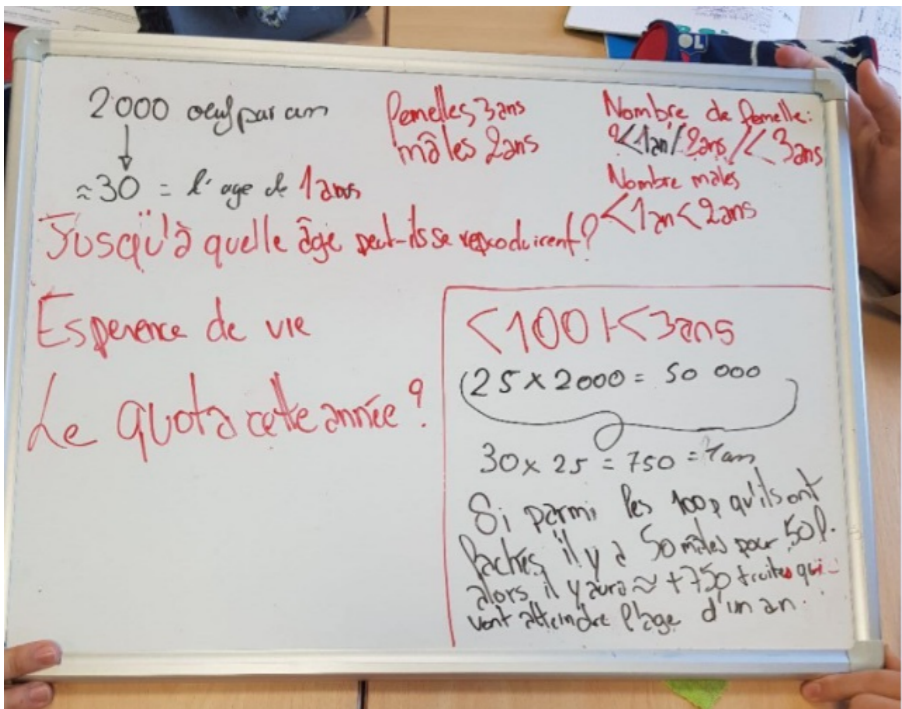 2000 oeuf par an
↓
≈30 = l'age de 1 ans
Femelles 3ans
mâles 2ans
Nombre de femelle:
<1an/2ans/<3ans
Nombre mâles
<1an<2ans
Jusqu'à quelle âge peut-ils se reproduirent?
Esperence de vie
Le quota cette année?
<100 <3ans
25 x 2000 = 50 000
30 x 25 = 750 = 1an
Si parmi les 100 qu'ils ont
lachés, il y a 50 mâles pour 50f.
alors il y aura ≈ +750 truites qui
vont atteindre l'age d'un an.
OL